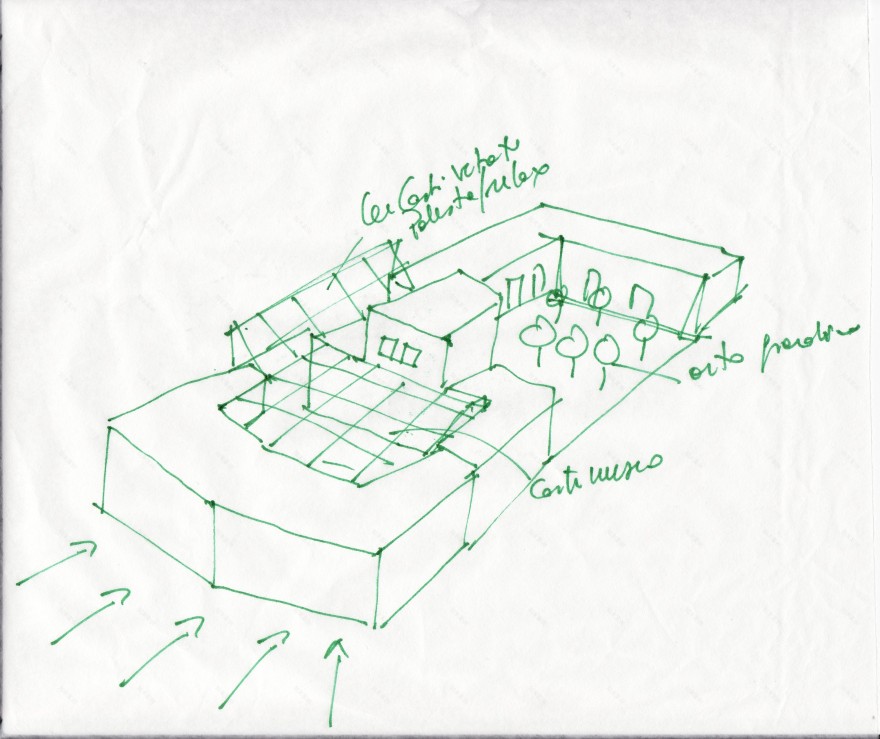 Corti vetrate
palestra/relax
orto giardino
Corte museo